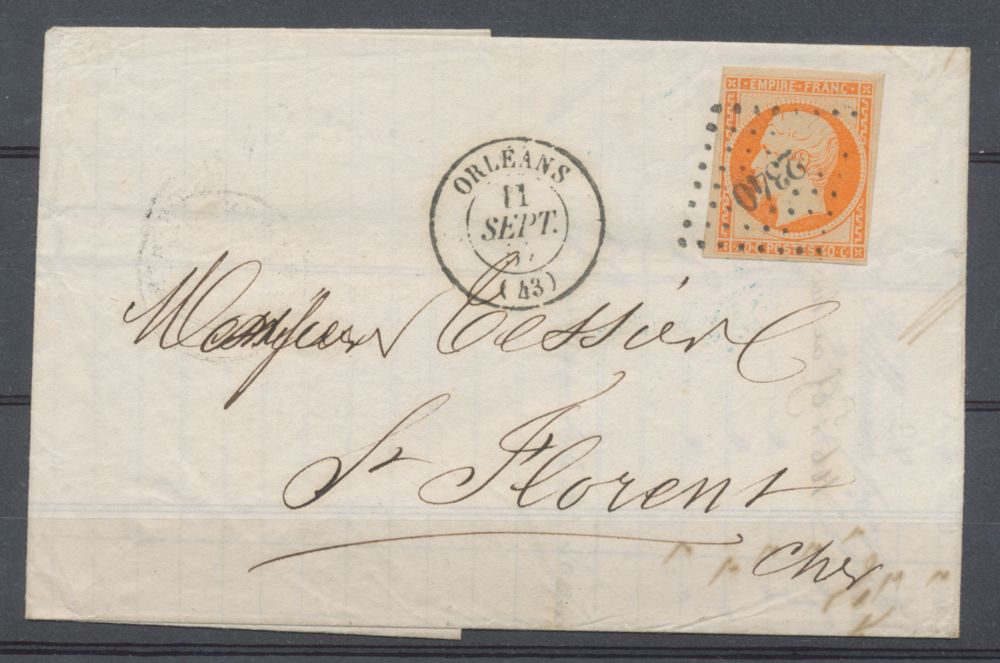 EMPIRE FRANC
2340
40 C POSTES 40 C
ORLÉANS
11
SEPT.
(43)
Tessier
St Florent
Cher